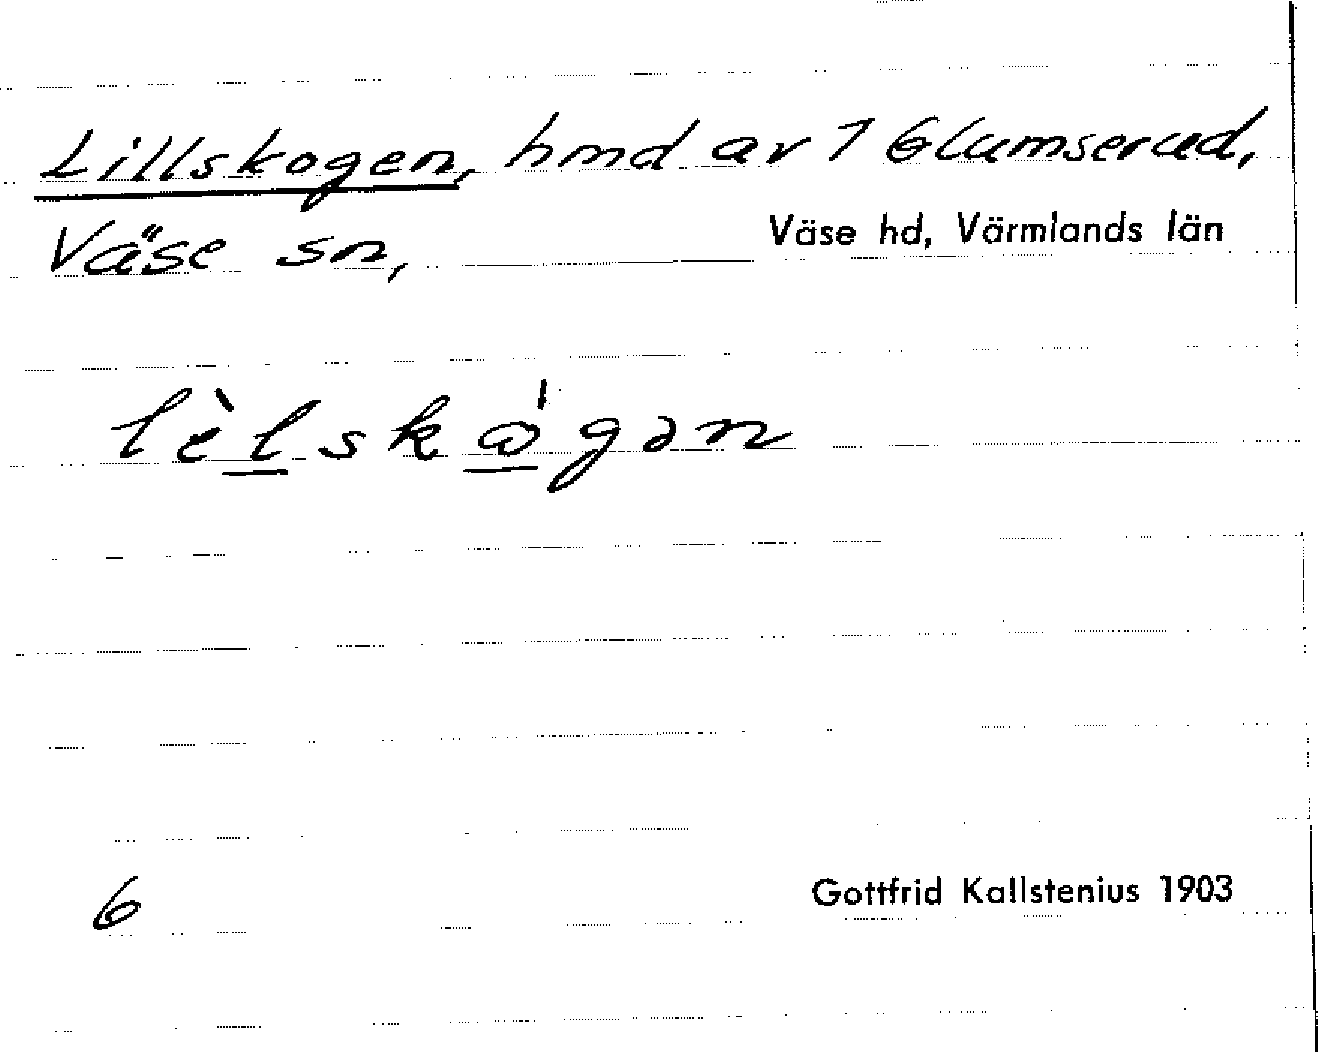 Lillskogen, hmd av 1 Glumserud,
Väse sn, Väse hd, Värmlands län
lèl̲skω̲̍gən
6
Gottfrid Kallstenius 1903